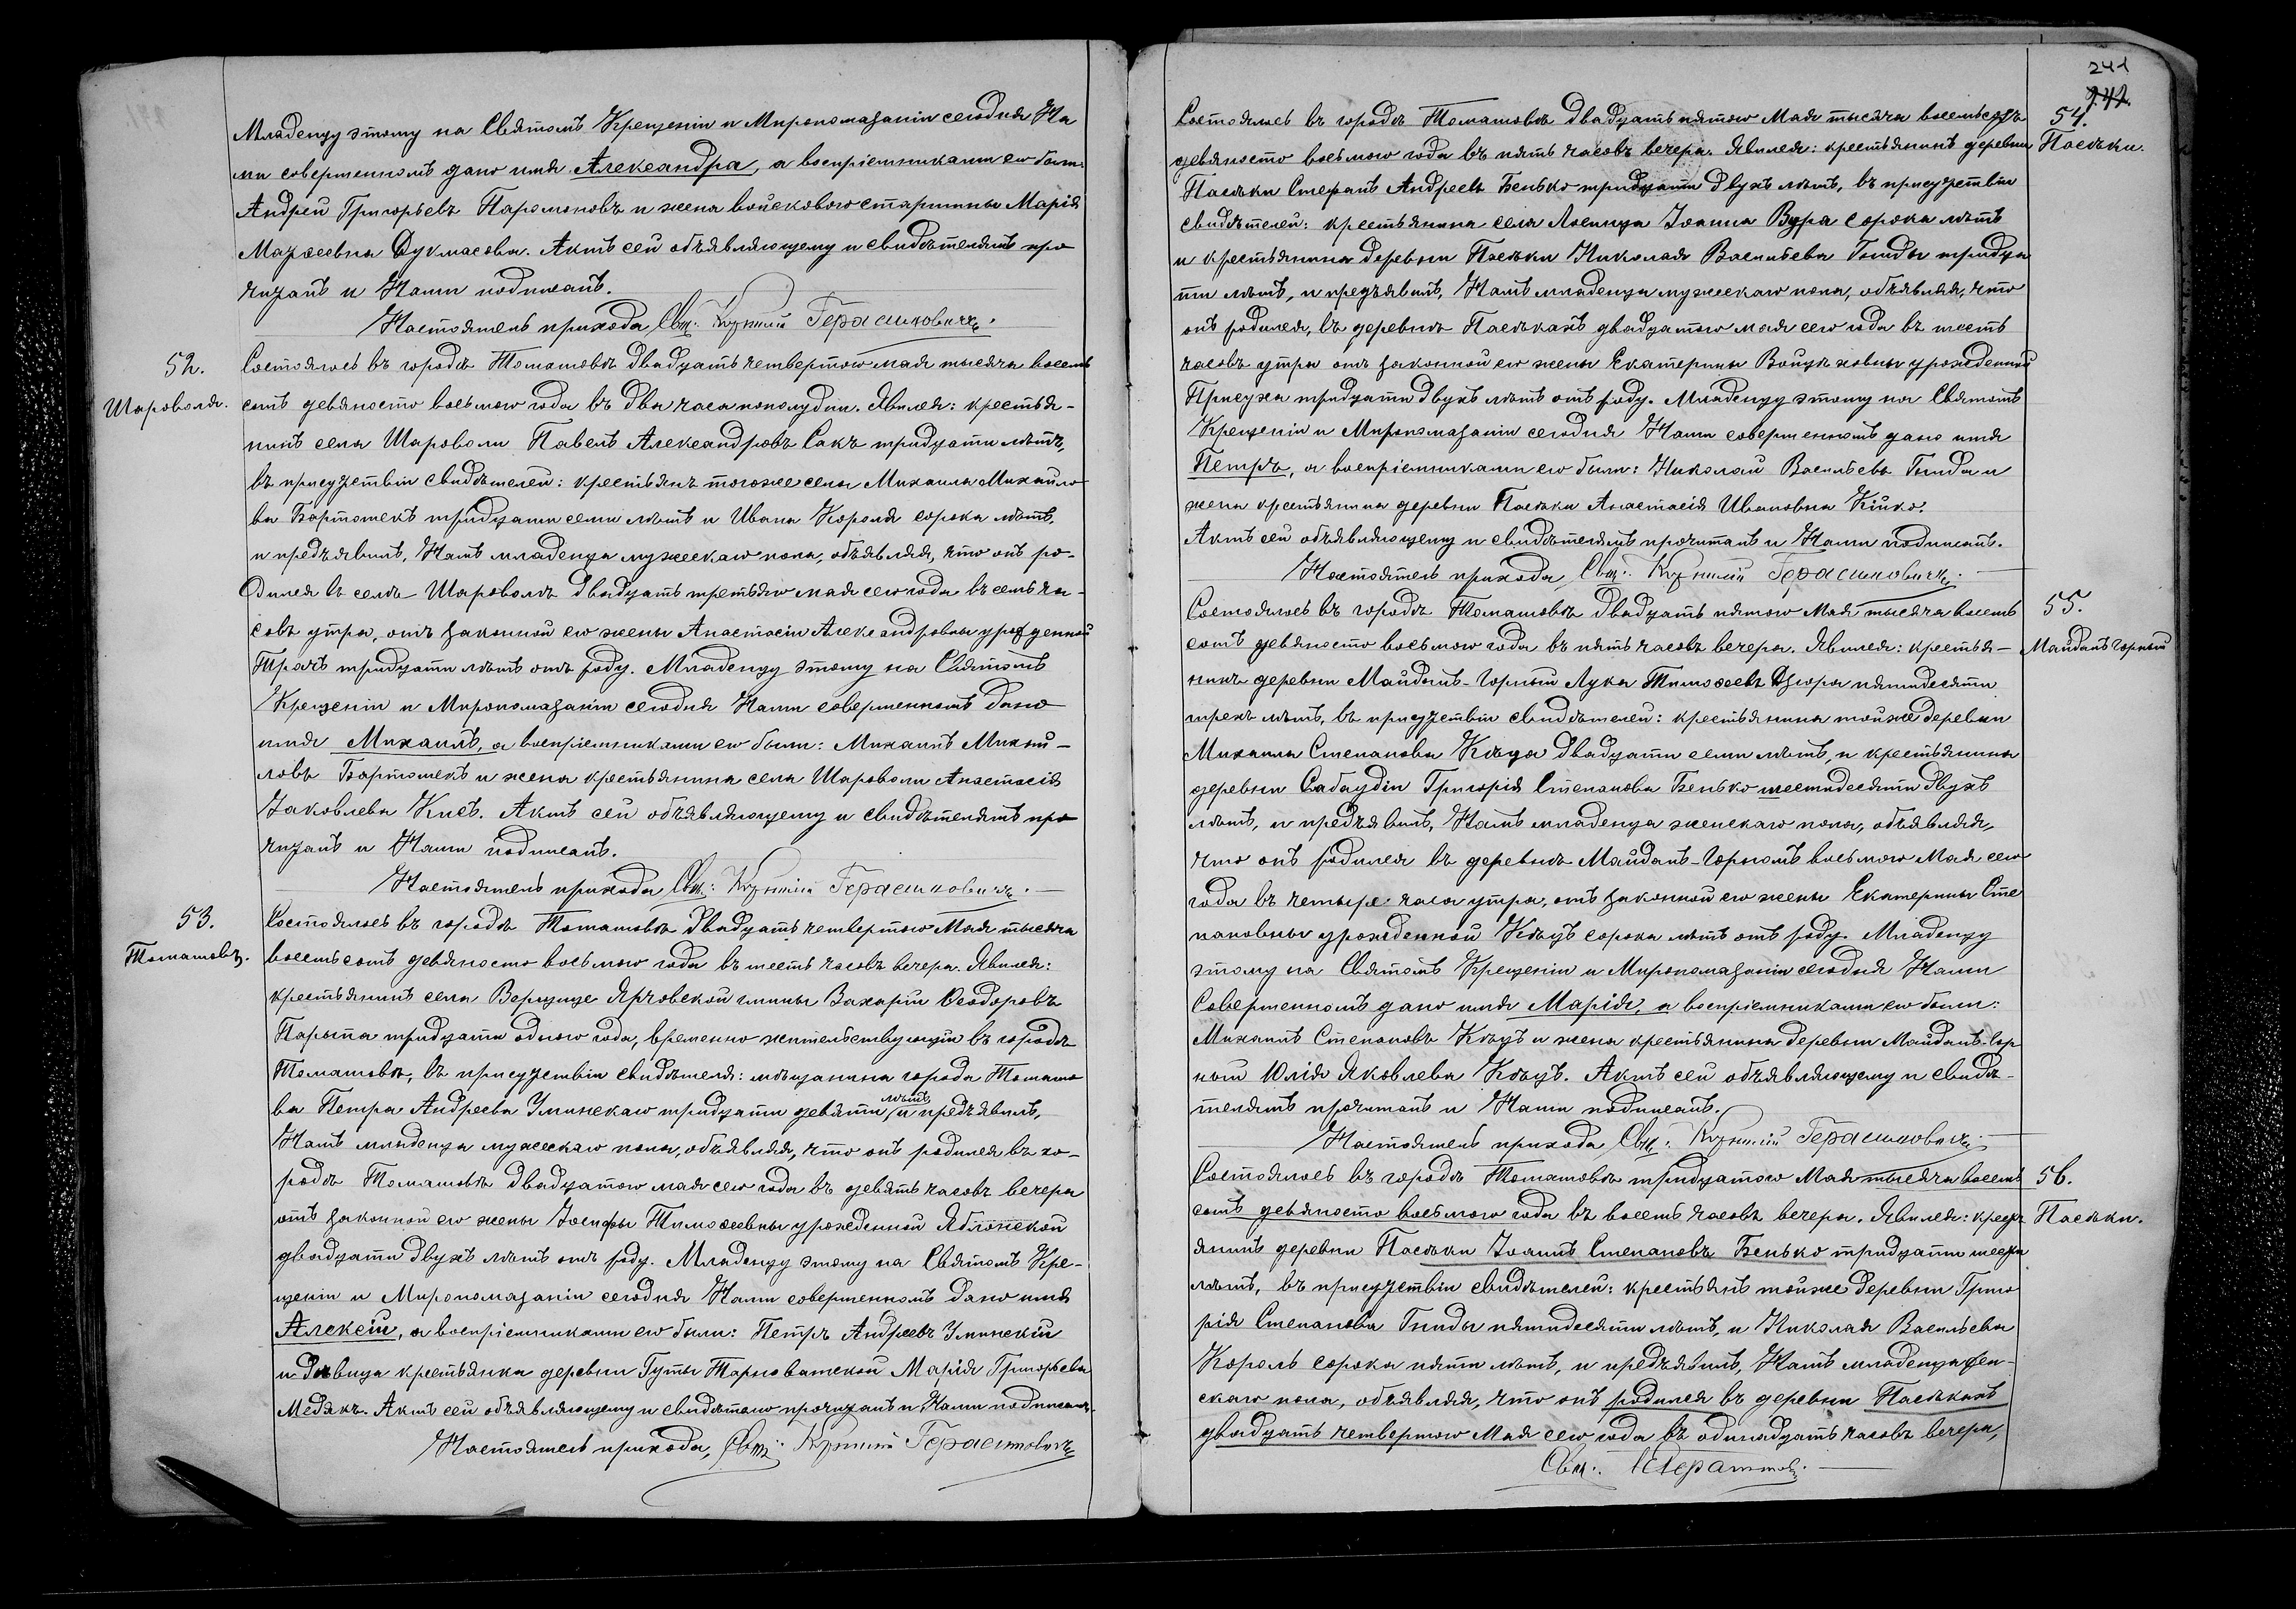 Младенцу этому на Святомъ Крещеніи и Миропомазаніи сегодня На
ми совершенномъ дано имя Александра, а воспріемниками его были:
Андрей Григорьевъ Парамоновъ и жена войскового старшины Марія
Дукмасова. Актъ сей объявляющему и свидѣтелямъ про
читанъ и Нами подписанъ.
Настоятель прихода Свщ: Герасимовичъ.
52.
Шароволя.
Состоялось въ городѣ Томашовѣ двадцать четвертого мая тысяча восемь
сотъ девяносто восьмого года въ два часа пополудни. Явился: крестья-
нинъ села Шароволи Павелъ Александровъ Сакъ тридцати лѣтъ,
въ присутствіи свидѣтелей: крестьянъ тогоже села Михаила Михайло
ва Бартошекъ тридцати семи лѣтъ и Ивана Короля сорока лѣтъ,
и предъявилъ Намъ младенца мужескаго пола, объявляя, что онъ ро-
дился въ селѣ Шароволѣ двадцать третьяго мая сего года въ семь ча-
совъ утра, отъ законной его жены Анастасіи Александровны урожденной
Трачъ тридцати лѣтъ отъ роду. Младенцу этому на Святомъ
Крещеніи и Миропомазаніи сегодня Нами совершенномъ дано
имя Михаилъ, а воспріемниками его были: Михаилъ Михай-
ловъ Бартошекъ и жена крестьянина села Шароволи Анастасія
Яковлева Кисъ. Актъ сей объявляющему и свидѣтелямъ про
читанъ и Нами подписанъ.
Настоятель прихода Свщ: Герасимовичъ.
53.
Томашовъ.
Состоялось въ городѣ Томашовѣ двадцать четвертого Мая тысяча
восемьсотъ девяносто восьмого года въ шесть часовъ вечера. Явился:
крестьянинъ села Верщище Ярчовской гмины Захарій Ѳеодоровъ
Парыпа тридцати одного года, временно жительствующій въ городѣ
Томашовѣ, въ присутствіи свидѣтеля: мѣщанина города Томашо
ва Петра Андреева Уминскаго тридцати девяти лѣтъ и предъявилъ,
Намъ младенца мужескаго пола, объявляя, что онъ родился въ го-
родѣ Томашовѣ двадцатого мая сего года въ девять часовъ вечера
отъ законной его жены Іосифы Тимоѳеевны урожденной Яблонской
двадцати двухъ лѣтъ отъ роду. Младенцу этому на Святомъ Кре-
щеніи и Миропомазаніи сегодня Нами совершенномъ дано имя
Алексій, а воспріемниками его были: Петръ Андреевъ Уминскій
и дѣвица крестьянка деревни Гуты Тарноватской Марія Григорьева
Медякъ. Актъ сей объявляющему и свидѣтелю прочитанъ и Нами подписанъ.
Настоятель прихода, Свщ: Герасимовичъ
241
242
54.
Пасѣки.
Состоялось въ городѣ Томашовѣ двадцать пятого Мая тысяча восемьсотъ
девяносто восьмого года въ пять часовъ вечера. Явился: крестьянинъ деревни
Пасѣки Стефанъ Андреевъ Бенько тридцати двухъ лѣтъ, въ присутствіи
свидѣтелей: крестьянина села Лосинца Іоанна Вура сорока лѣтъ
и крестьянина деревни Пасѣки Николая Васильева Гнида тридца
ти лѣтъ, и предъявилъ, Намъ младенца мужескаго пола, объявляя, что
онъ родился, въ деревнѣ Пасѣкахъ двадцатого мая сего года въ шесть
часовъ утра отъ законной его жены Екатерины Войцѣховны урожденной
Присуха тридцати двухъ лѣтъ отъ роду. Младенцу этому на Святомъ
Крещеніи и Миропомазаніи сегодня Нами совершенномъ дано имя
Петръ, а воспріемниками его были: Николай Васильевъ Гнида и
жена крестьянина деревни Пасѣки Анастасія Ивановна Кійко.
Актъ сей объявляющему и свидѣтелямъ прочитанъ и Нами подписанъ.
Настоятель прихода, Свщ: Герасимовичъ.
55.
Майданъ Горный
Состоялось въ городѣ Томашовѣ двадцать пятого Мая тысяча восемь
сотъ девяносто восьмого года въ пять часовъ вечера. Явился: крестья-
нинъ деревни Майданъ-Горный Лука Тимоѳеевъ Дзюра пятидесяти
трехъ лѣтъ, въ присутствіи свидѣтелей: крестьянина тойже деревни
Михаила Степанова Кѣца двадцати семи лѣтъ, и крестьянина
деревни Сабаудіи Григорія Степанова Бенько шестидесяти двухъ
лѣтъ, и предъявилъ, Намъ младенца женскаго пола, объявляя,
что онъ родился въ деревнѣ Майданѣ-Горномъ восьмого Мая сего
года въ четыре часа утра, отъ законной его жены Екатерины Сте
пановны урожденной Кѣцъ сорока лѣтъ отъ роду. Младенцу
этому на Святомъ Крещеніи и Миропомазаніи сегодня Нами
совершенномъ дано имя Марія, а воспріемниками его были:
Михаилъ Степановъ Кѣцъ и жена крестьянина деревни Майданъ-Гор
ный Юлія Яковлева Кѣцъ. Актъ сей объявляющему и свидѣ-
телямъ прочитанъ и Нами подписанъ.
Настоятель прихода Свщ: Герасимовичъ.
56.
Пасѣки.
Состоялось въ городѣ Томашовѣ тридцатого Мая тысяча восемь
сотъ девяносто восьмого года въ восемь часовъ вечера. Явился: крест
янинъ деревни Пасѣки Іоаннъ Степановъ Бенько тридцати шести
лѣтъ, въ присутствіи свидѣтелей: крестьянъ тойже деревни Григо
рія Степанова Гниды пятидесяти лѣтъ, и Николая Васильева
Король сорока пяти лѣтъ, и предъявилъ, Намъ младенца жен-
скаго пола, объявляя, что онъ родился въ деревни Пасѣкахъ
двадцать четвертого Мая сего года въ одинадцать часовъ вечера,
Свщ: